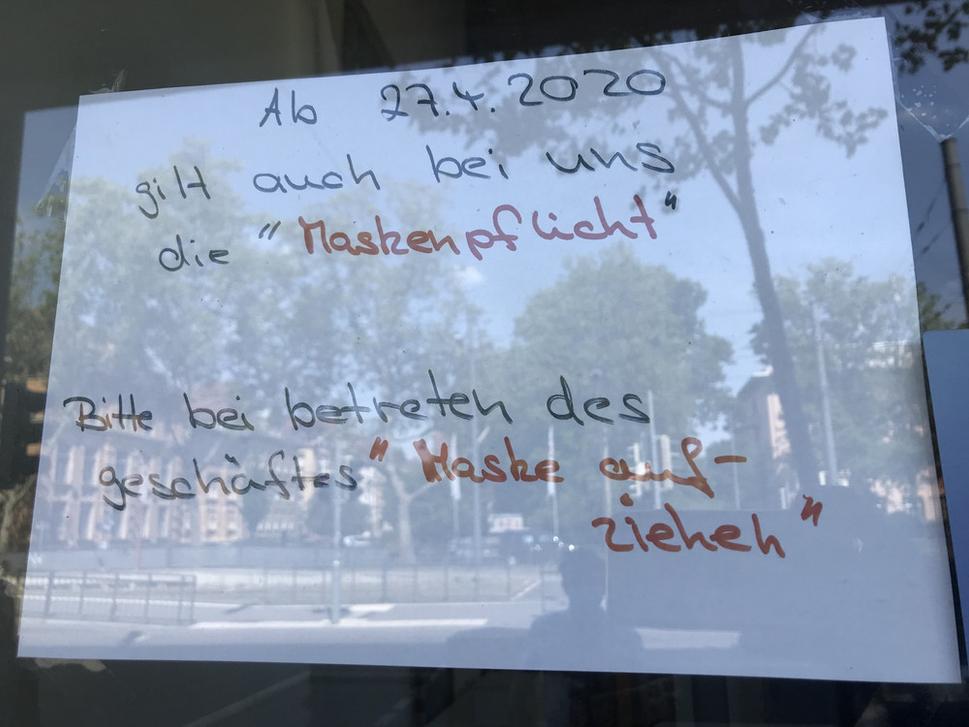 Ab 27.4.2020
gilt auch bei uns
die "Maskenpflicht"
Bitte bei betreten des
geschäftes "Maske auf-
ziehen"